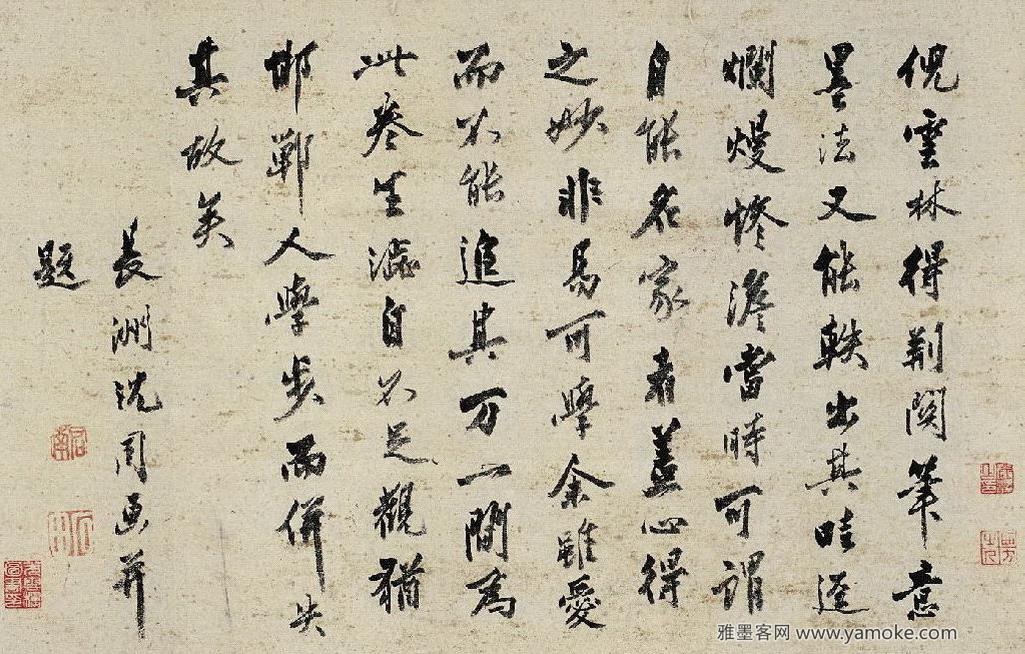 倪雲林得荊関筆意
墨法又能軼出其畦逕
斕熳惨澹當時可謂
自能名家者蓋心得
之妙非易可學余雖愛
而不能追其万一閒為
此卷生澁自不足觀猶
邯鄲人學步而併失
其故矣
長洲沈周画并
題
雅墨客网 www.yamoke.com